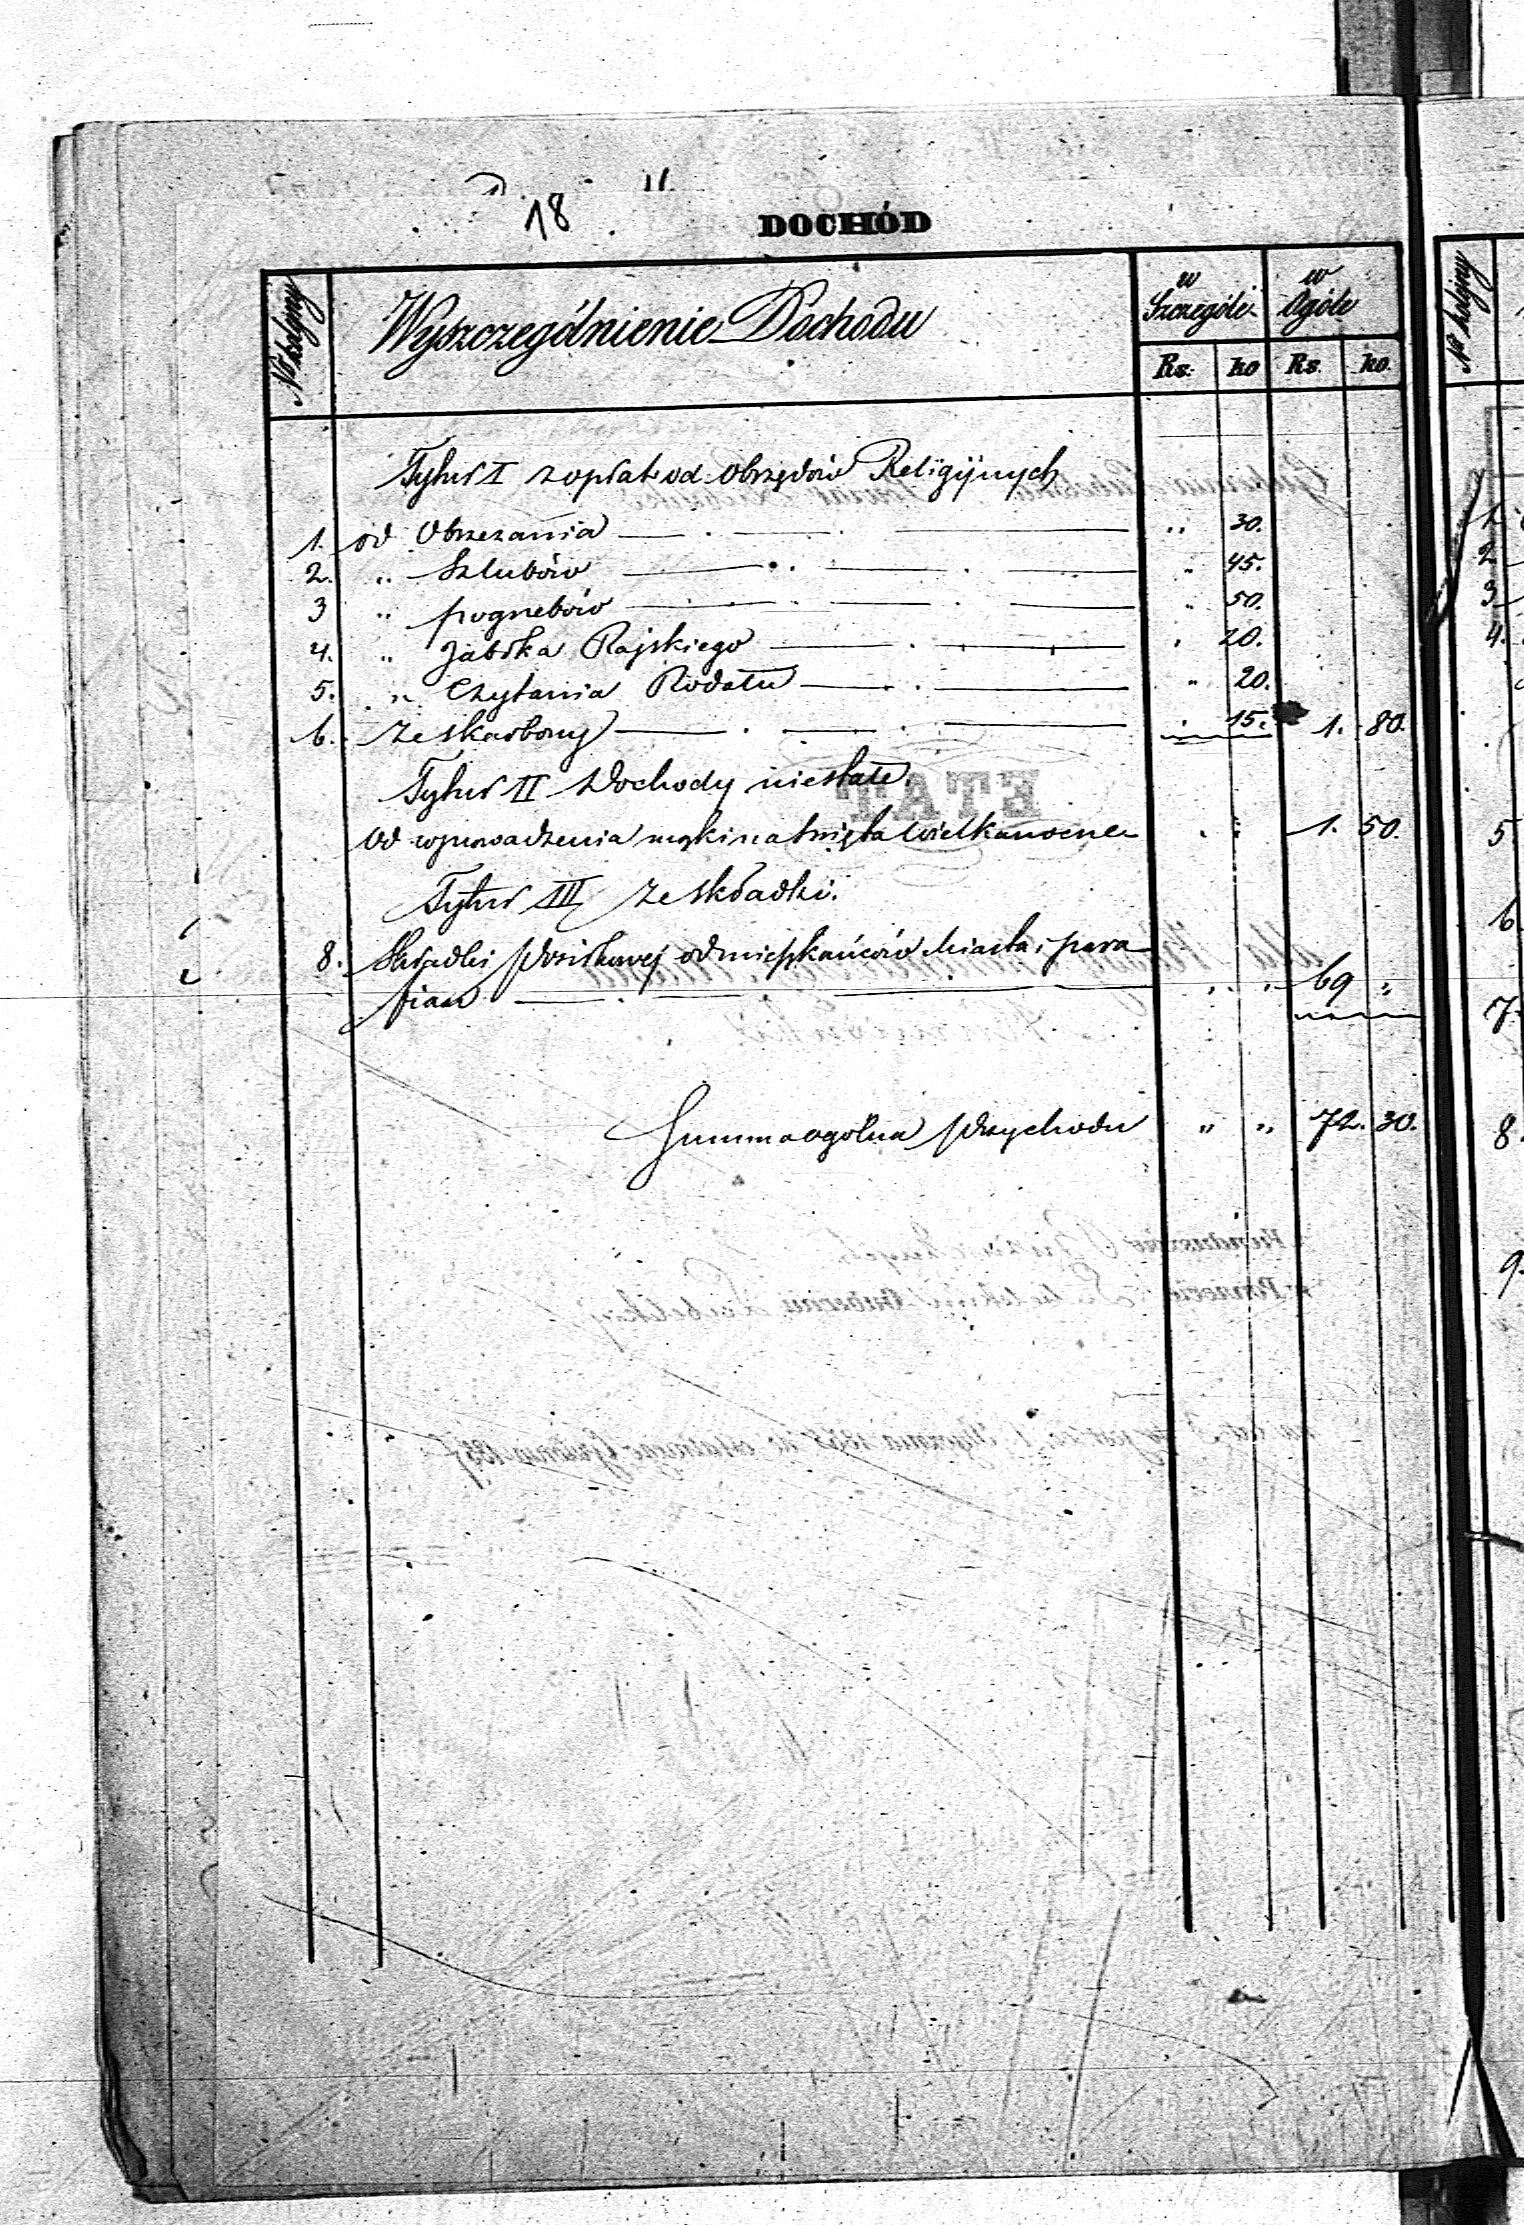 18
DOCHÓD
No kolejny
Wyszczególnienie Dochodu
w Szczególe
w Ogóle
Rs. ko Rs. ko.
Tytuł I z opłat od Obrzędów Religijnych
1. od Obrzezania " 30.
2. " Szlubów " 45.
3 " pogrzebów " 50.
4. " Jabłka Rajskiego " 20.
5. " Czytania Rodału " 20.
6. ze skarbony " 15. 1. 80.
Tytuł II Dochody niestałe.
Od wprowadzenia mąki na Święta Wielkanocne " " 1. 50.
Tytuł III ze składki.
8. Składki od mieszkańców Miasta i para
fian " " 69 "
Summa ogólna przychodu " " 72. 30.
ETAT
No kolejny
1.
2
3
4.
5
6
7.
8.
9.